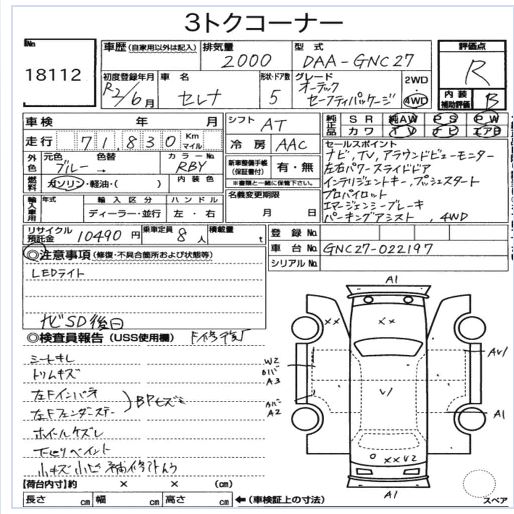 3トクコーナー
No.
18112
車歴 (自家用以外は記入)
排気量
2000
型式
DAA-GNC27
評価点
R
初度登録年月
R2/6月
車名
セレナ
形状・ドア数
5
グレード
オーテック
セーフティパッケージ
2WD
4WD
内装
補助評価
B
車検 年 月
シフト
AT
純正品
SR 純AW PS PW
カワ TV ナビ エアB
走行 71,830 Km マイル
冷房
AAC
セールスポイント
ナビ,TV,アラウンドビューモニター
左右パワースライドドア
インテリジェントキー,プッシュスタート
プロパイロット
エマージェンシーブレーキ
パーキングアシスト,4WD
外色
元色
ブルー→
色替
カラーNo
RBY
内装色
新車整備手帳
(※保証書付)
有・無
※書類と一緒に保管下さい。
燃料
ガソリン・軽油・( )
名義変更期限
月 日
輸入車用
年式
輸入区分
ディーラー・並行
ハンドル
左・右
リサイクル預託金
10490円
乗定員
8人
積載量
t
登録No.
車台No.
GNC27-022197
シリアルNo.
◎注意事項 (修復・不具合箇所および状態等)
LEDライト
ナビSD後日
◎検査員報告 (USS使用欄)
シートキレ
トリムキズ
左Fインパネ
左Fフェンダーステー
ホイールケズレ
下回りペイント
小キズ小凹
【荷台内寸】約 × × (cm)
長さ cm 幅 cm 高さ cm ←(車検証上の寸法)
A1
××
××
W2
カバー
A3
カバー
A2
AU1
A1
××U2
A1
スペア